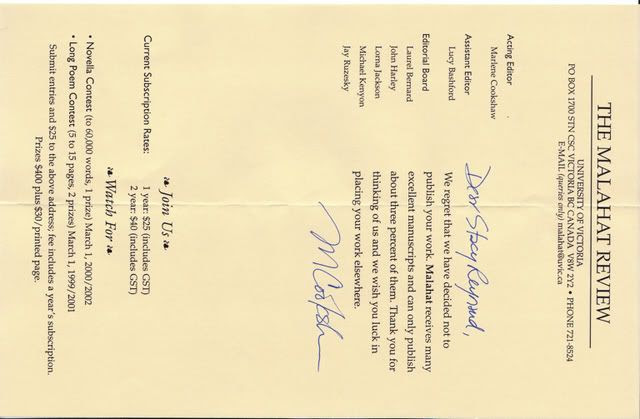 THE MALAHAT REVIEW
UNIVERSITY OF VICTORIA
PO BOX 1700 STN CSC VICTORIA BC CANADA V8W 2Y2 • PHONE 721-8524
E-MAIL (queries only) malahat@uvic.ca
Acting Editor
Marlene Cookshaw
Assistant Editor
Lucy Bashford
Editorial Board
Laurel Bernard
John Harley
Lorna Jackson
Michael Kenyon
Jay Ruzesky
Dear Stacy
We regret that we have decided not to
publish your work. Malahat receives many
excellent manuscripts and can only publish
about three percent of them. Thank you for
thinking of us and we wish you luck in
placing your work elsewhere.
Join Us
Current Subscription Rates:
1 year: $25 (includes GST)
2 year: $40 (includes GST)
Watch For
• Novella Contest (to 60,000 words, 1 prize) March 1, 2000/2002
• Long Poem Contest (5 to 15 pages, 2 prizes) March 1, 1999/2001
Submit entries and $25 to the above address; fee includes a year's subscription.
Prizes $400 plus $30/printed page.